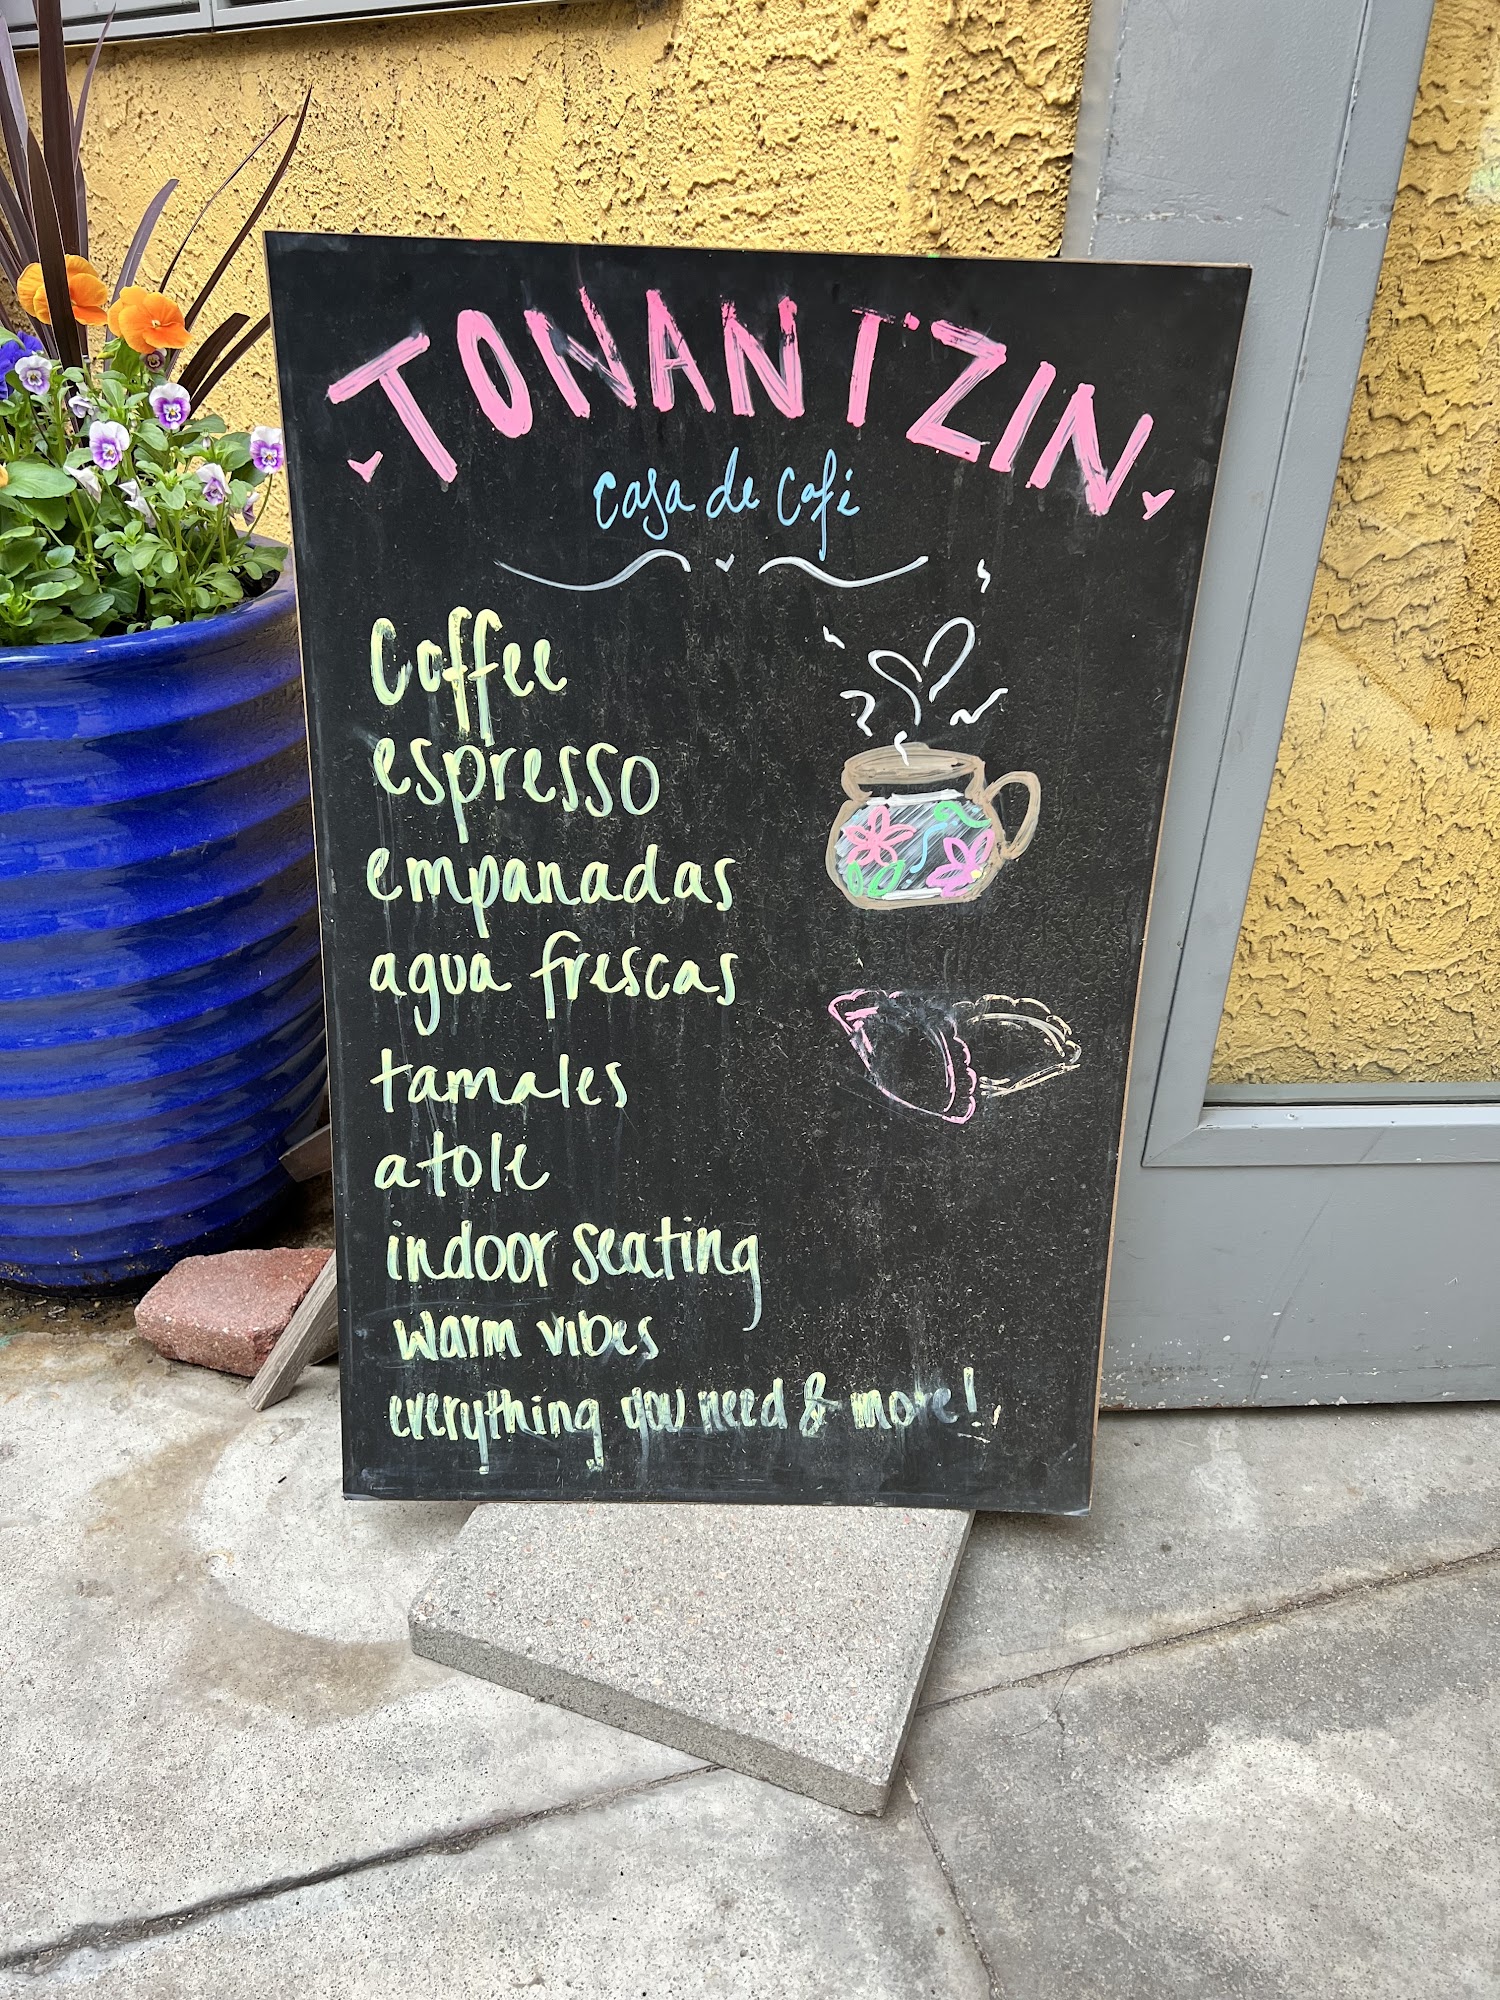 TONANTZIN
Casa de Café
Coffee
espresso
empanadas
agua frescas
tamales
atole
indoor seating
warm vibes
everything you need & more!